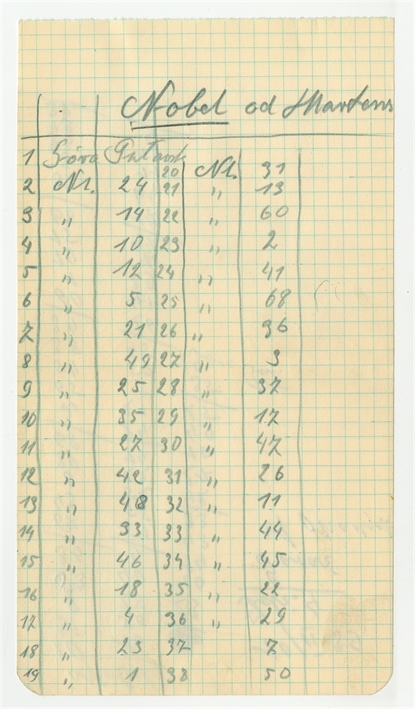 Nobel od Martens
1 Góra Patark
2 Nr. 24 20 21 Nr. 31 13
3 „ 14 22 „ 60
4 „ 10 23 „ 2
5 „ 12 24 „ 41
6 „ 5 25 „ 68
7 „ 21 26 „ 36
8 „ 49 27 „ 3
9 „ 25 28 „ 37
10 „ 35 29 „ 17
11 „ 27 30 „ 47
12 „ 42 31 „ 26
13 „ 48 32 „ 11
14 „ 33 33 „ 44
15 „ 46 34 „ 45
16 „ 18 35 „ 22
17 „ 4 36 „ 29
18 „ 23 37 7
19 „ 1 38 50